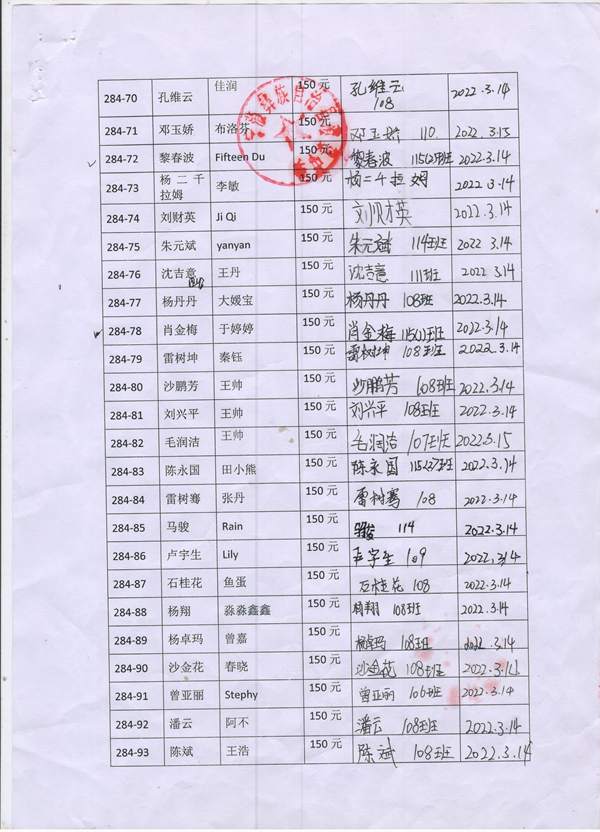 284-70 孔维云 佳润 150 元 孔维云 108 2022.3.14
284-71 邓玉娇 布洛芬 150 元 邓玉娇 110 2022.3.15
284-72 黎春波 Fifteen Du 150 元 黎春波 115(2)班 2022.3.14
284-73 杨二千拉姆 李敏 150 元 杨二千拉姆 2022.3.14
284-74 刘财英 Ji Qi 150 元 刘财英 2022.3.14
284-75 朱元斌 yanyan 150 元 朱元斌 114班 2022 3.14
284-76 沈吉意 王丹 150 元 沈吉意 111班 2022 3.14
284-77 杨丹丹 大媛宝 150 元 杨丹丹 108班 2022.3.14
284-78 肖金梅 于婷婷 150 元 肖金梅 115(1)班 2022.3.14
284-79 雷树坤 秦钰 150 元 雷树坤 108班 2022.3.14
284-80 沙鹏芳 王帅 150 元 沙鹏芳 108班 2022.3.14
284-81 刘兴平 王帅 150 元 刘兴平 108班 2022.3.14
284-82 毛润洁 王帅 150 元 毛润洁 107班 2022.3.15
284-83 陈永国 田小熊 150 元 陈永国 115(2)班 2022.3.14
284-84 雷树骞 张丹 150 元 雷树骞 108 2022.3.14
284-85 马骏 Rain 150 元 马骏 114 2022.3.14
284-86 卢宇生 Lily 150 元 卢宇生 109 2022.3.14
284-87 石桂花 鱼蛋 150 元 石桂花 108 2022.3.14
284-88 杨翔 淼淼鑫鑫 150 元 杨翔 108班 2022.3.14
284-89 杨卓玛 曾嘉 150 元 杨卓玛 108班 2022.3.14
284-90 沙金花 春晓 150 元 沙金花 108班 2022.3.14
284-91 曾亚丽 Stephy 150 元 曾亚丽 106班 2022.3.14
284-92 潘云 阿不 150 元 潘云 108班 2022.3.14
284-93 陈斌 王浩 150 元 陈斌 108班 2022.3.14